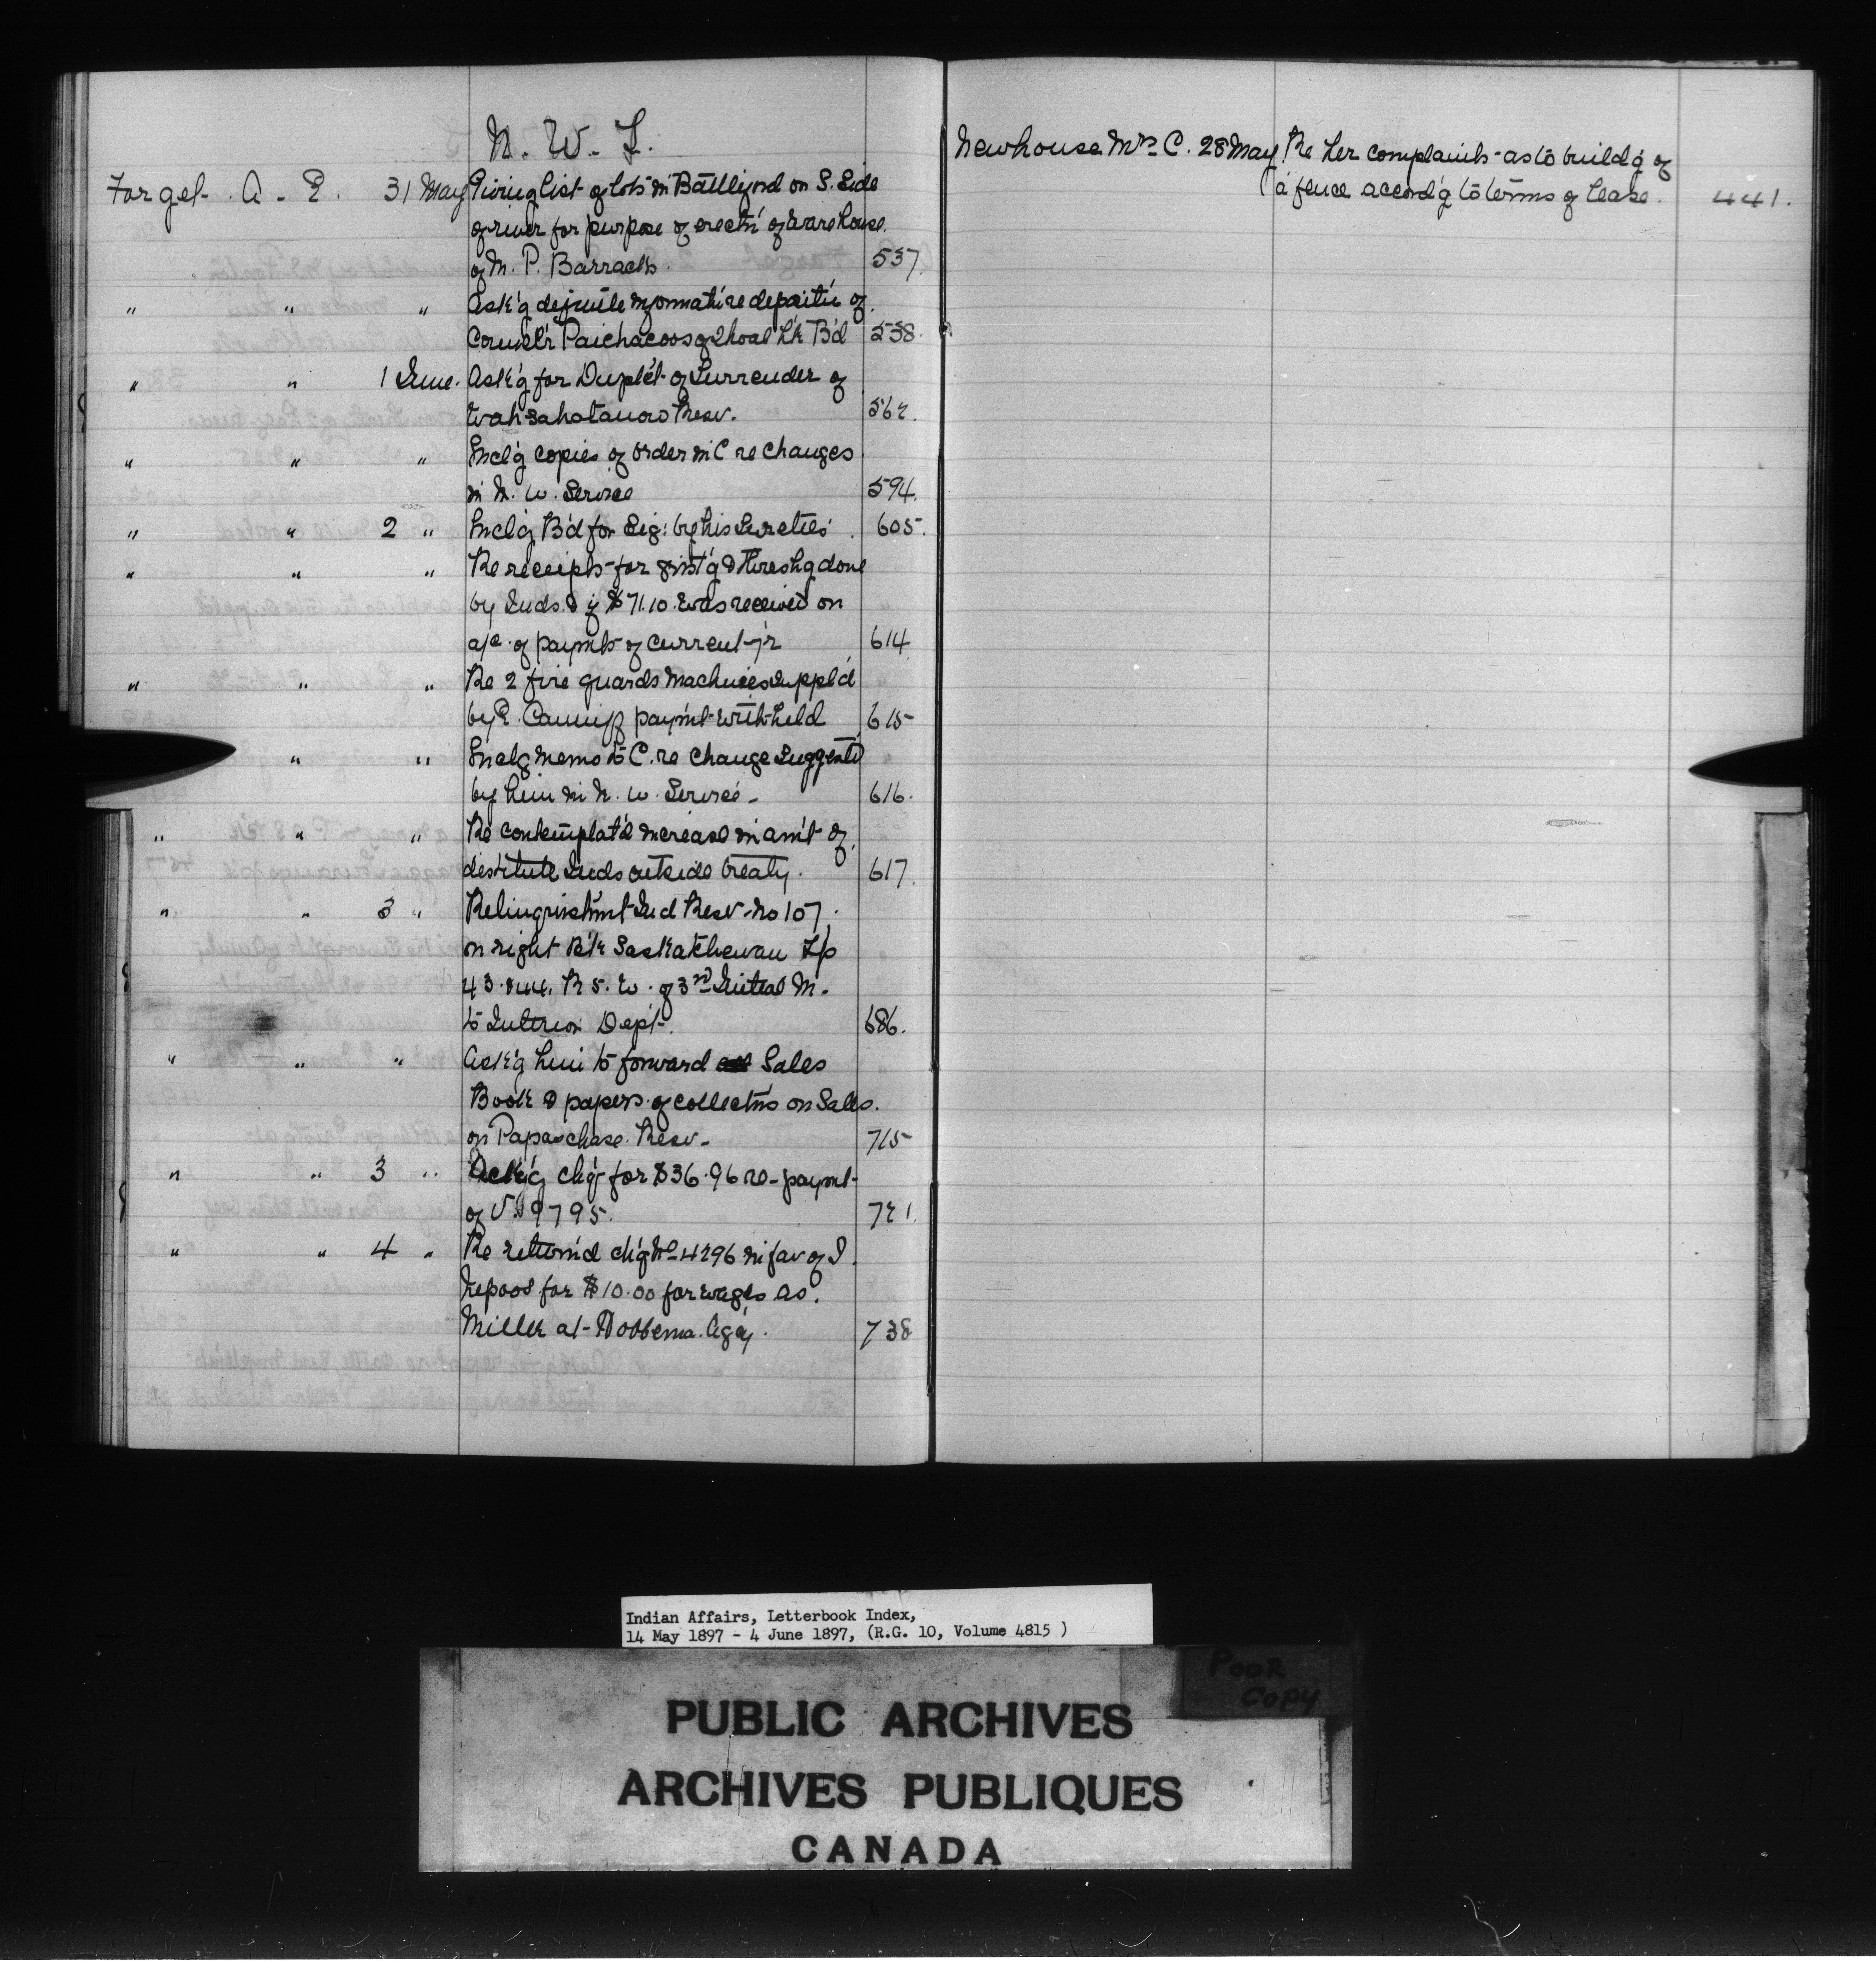 N. W. T.
Forget A. E. 31 May Giving list of lots in Battleford on S. Side
of river for purpose of erect'n of ware house
of M. P. Barracks. 537.
" " " Ask'g definite informat'n re deposit'n of
Counc'lr Paichacoos of Shoal L'k B'd 538.
" " 1 June. Ask'g for Duplc't of Surrender of
Wahsahatanow Resv. 562.
" " " Incl'g copies of order in C re changes
in N. W. Service 594.
" " 2 " Incl'g B'd for Sig: by his Sureties 605.
" " " Re receipts for grist'g & Thresh'g done
by Inds. & if $71.10. was received on
a/c of paymts of current yr 614
" " " Re 2 fire guards Machines suppl'd
by E. Cauniff paym't withheld 615
" " Inclg memo to C. re change suggest'd
by him in N. W. Service - 616.
" " " Re contemplat'd increase in am't of
destitute Inds outside treaty. 617.
" " 3 " Relinquishm't Ind Resv. No 107.
on right B'k Saskatchewan Tp
43. & 44. R 5. W. of 3rd Initial M.
to Interior Dept. 686.
" " " Ask'g him to forward Sales
Book & papers of collect'ns on Sales.
on Papaschase Resv - 715
" " 3 " Ack'g ch'q for $36.96 re-paymt
of V. 9795. 721.
" " 4 " Re return'd ch'q No 4296 in fav of I.
Nepoos for $10.00 for wages as.
Miller at Hobbema Ag'y. 738
Newhouse Mrs C. 28 May Re her complaints as to build'g of
a fence accord'g to terms of lease. 441.
Indian Affairs, Letterbook Index,
14 May 1897 - 4 June 1897, (R.G. 10, Volume 4815 )
POOR
COPY
PUBLIC ARCHIVES
ARCHIVES PUBLIQUES
CANADA